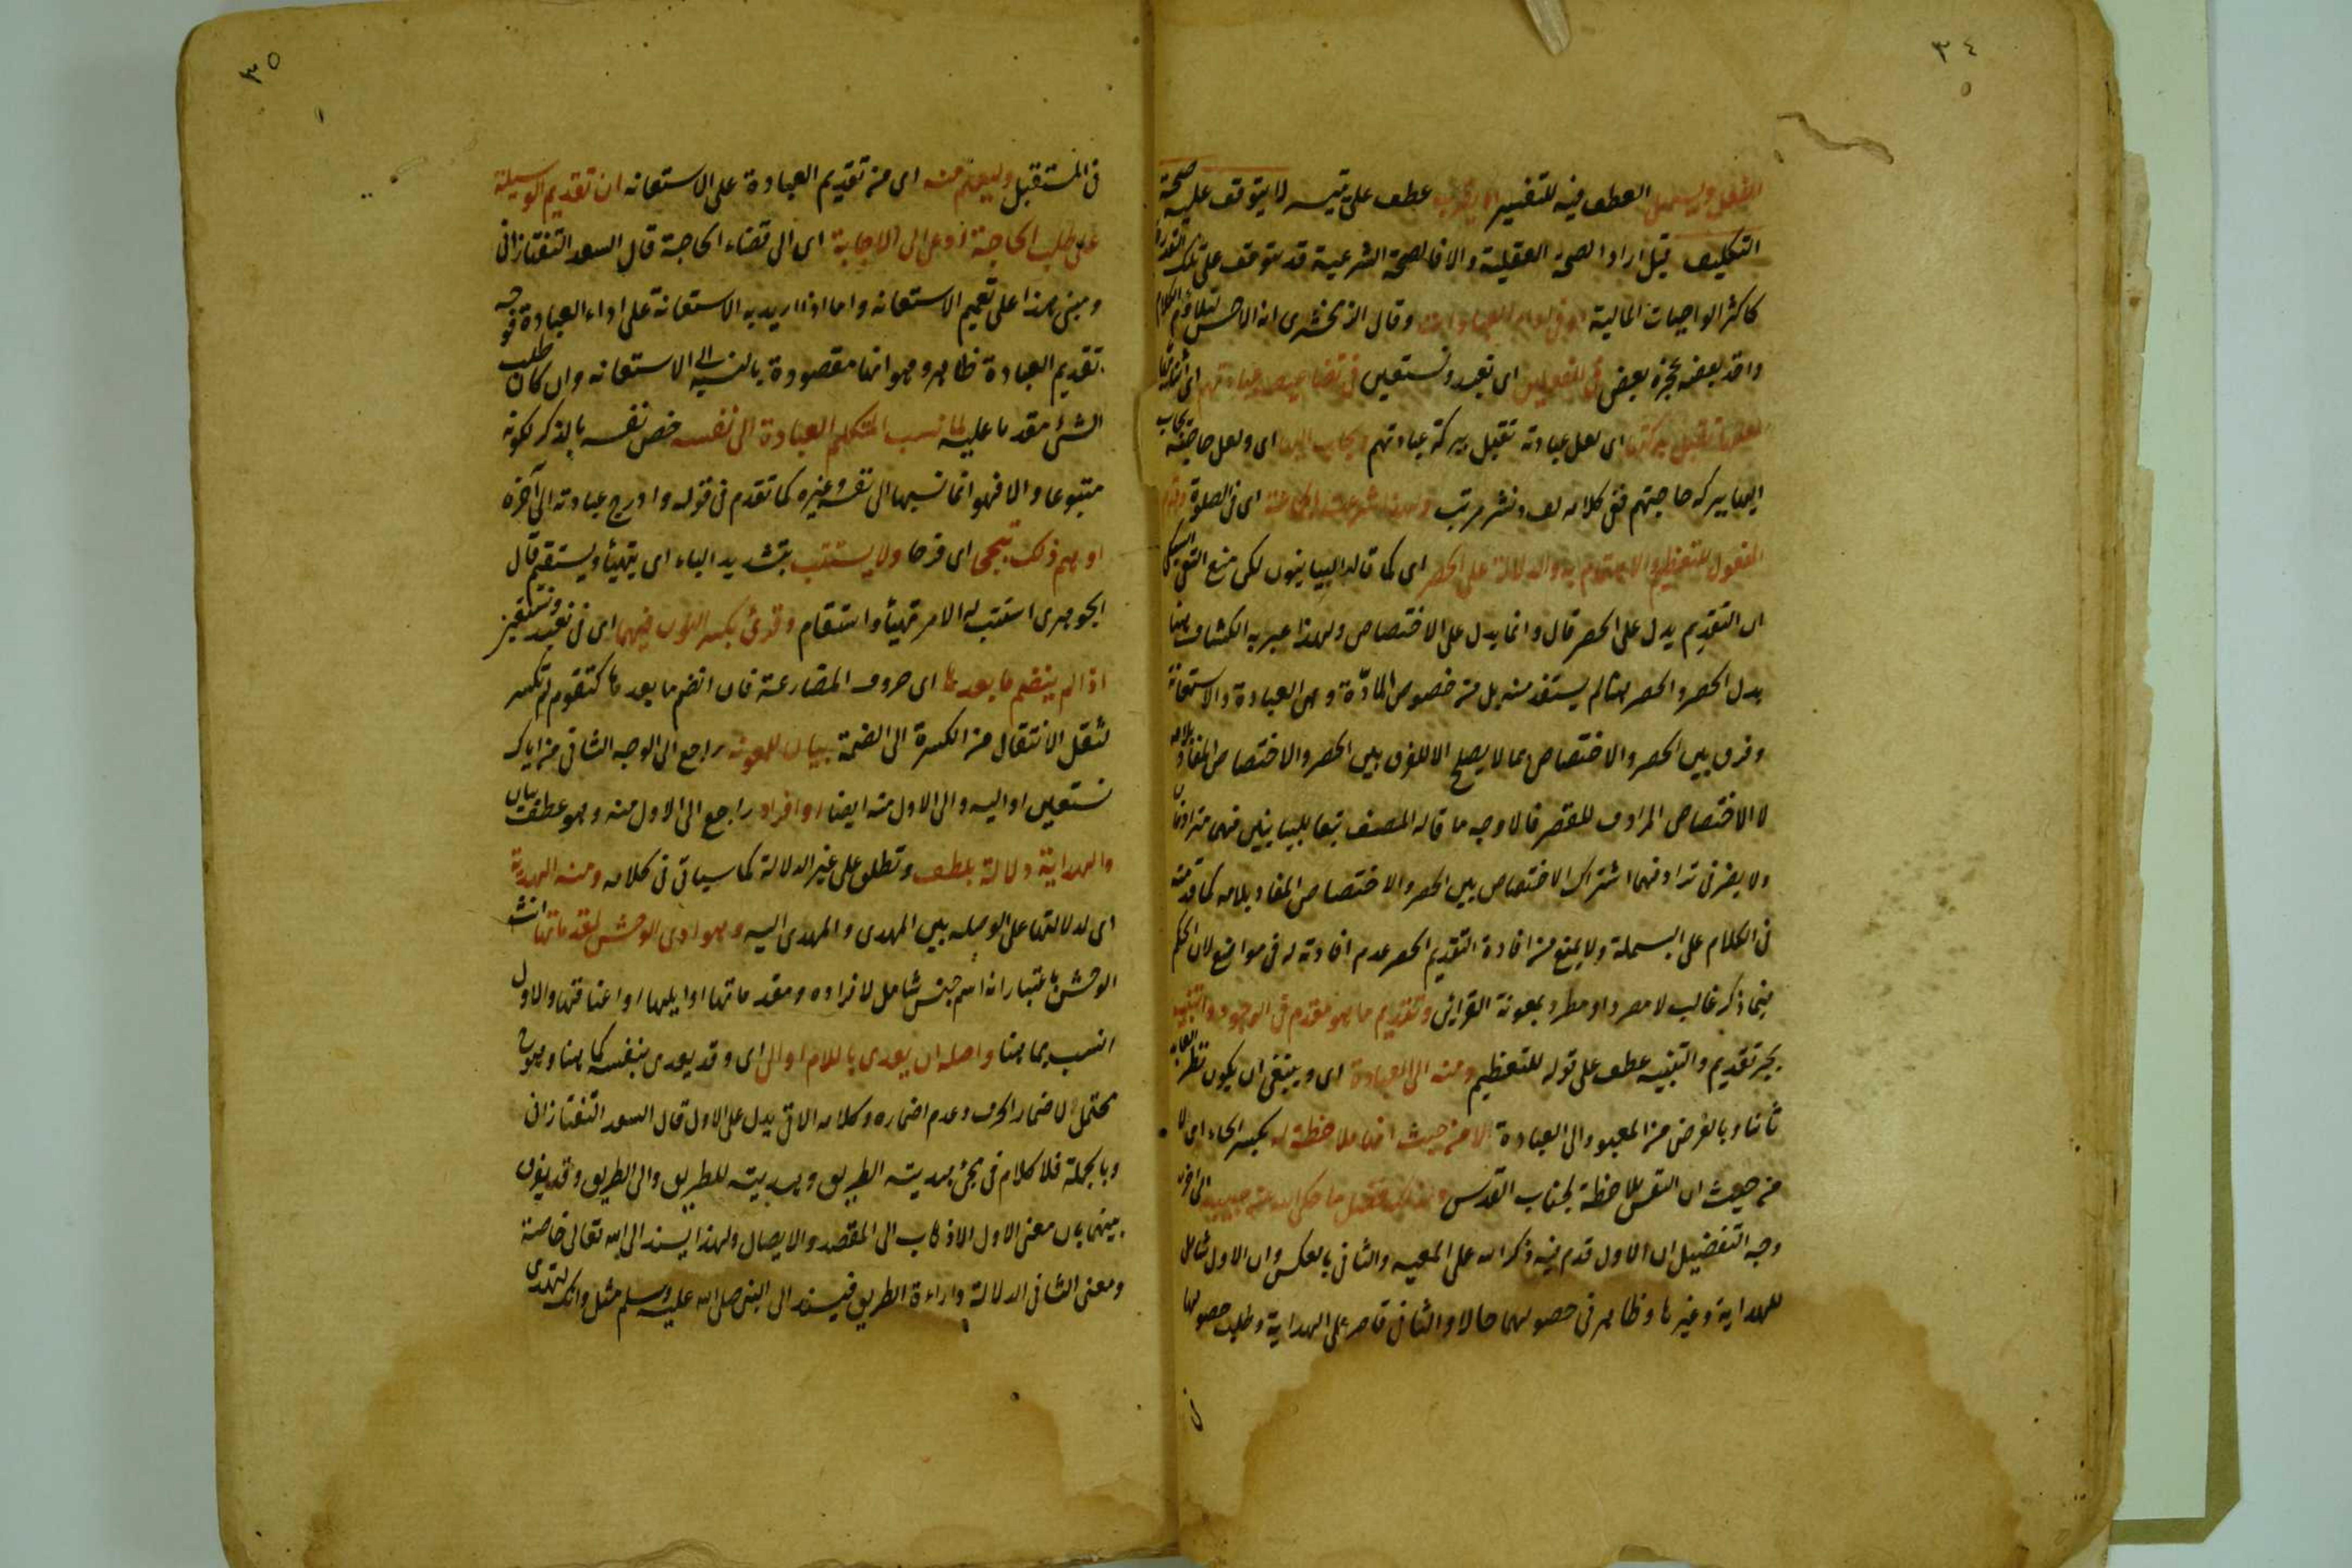 ٣٤
الفعل ويسهل العطف فيه للتفسير او يقرب عطف على يتيسر لا يتوقف عليه صحة
التكليف قيل اراد الصحة العقلية والا فالصحة الشرعية قد تتوقف على تلك القدرة
كاكثر الواجبات المالية او في اداء العبادات وقال الزمخشرى انه الاحسن لتلاؤم الكلام
واخذ بعضه بحجزة بعض في الفعلين اى نعبد ونستعين في تضاعيف عبادتهم اى اثنائها
لعلها تقبل ببركتها اى لعل عبادته تقبل ببركة عبادتهم ويجاب اليها اى ولعل حاجته يجاب
اليها ببركة حاجتهم ففى كلامه لف ونشر مرتب ولهذا شرعت الجماعة اى في الصلوة وقدم
المفعول للتعظيم والاهتمام به والدلالة على الحصر اى كما قاله البيانيون لكن منع التقى السبكى
ان التقديم يدل على الحصر قال وانما يدل على الاختصاص ولهذا عبر به الكشاف هنا
بدل الحصر والحصر هنا لم يستفد منه بل من خصوص المادّة وهى العبادة والاستعانة
وفرق بين الحصر والاختصاص بما لا يصلح الا للفرق بين الحصر والاختصاص المفاد بلامه
لا الاختصاص المرادف للقصر فالاوجه ما قاله المصنف تبعا للبيانيين فهما مترادفان
ولا يضر في ترادفهما اشتراك الاختصاص بين الحصر والاختصاص المفاد بلامه كما قدمته
في الكلام على البسملة ولا يمنع من افادة التقديم الحصر عدم افادته له في مواضع لان الحكم
فيما ذكر غالب لا مصر او مطرد بمعونة القرائن وتقديم ما هو مقدم في الوجود والتنبيه
بجر تقديم والتنبيه عطف على قوله للتعظيم ومنه الى العبادة اى وينبغى ان يكون نظر العابد
ثانيا وبالغرض من المعبود الى العبادة الا من حيث انها ملاحظة له بكسر الحاء اى لا
من حيث ان النفس ملاحظة لجناب القدس ولذلك فضل ما حكى الله عن حبيبه الى اخره
وجه التفضيل ان الاول قدم فيه ذكر الله على المعيه والثانى بالعكس وان الاول شامل
للهداية وغيرها وظاهر في حصولهما حالا والثانى قاصر على الهداية وطلب حصولها
٣٥
في المستقبل وليعلم منه اى من تقديم العبادة على الاستعانه ان تقديم الوسيلة
على طلب الحاجة ادعى الى الاجابة اى الى قضاء الحاجة قال السعد التفتازانى
ومبنى هذا على تعميم الاستعانه واما اذا اريد به الاستعانة على اداء العبادة فوجه
تقديم العبادة ظاهر وهو انها مقصودة بالنسبه الى الاستعانه وان كان طلب
الشئ مقدما عليه لما نسب المتكلم العبادة الى نفسه خص نفسه بالذكر لكونه
متبوعا والا فهو انما نسبها الى نفسه وغيره كما تقدم في قوله وادرج عبادته الى آخره
اوهم ذلك تبجحا اى فرحا ولا يستتب بتشديد الباء اى يتهيأ ويستقيم قال
الجوهرى استتب له الامر تهيأ واستقام وقرئ بكسر النون فيهما اى في نعبد ونستعين
اذا لم ينضم ما بعدها اى حروف المضارعة فان انضم ما بعدها كتقوم لم تكسر
لثقل الانتقال من الكسرة الى الضمة بيان للمعونه راجع الى الوجه الثانى من اياك
نستعين او اليه والى الاول منه ايضا او افراد راجع الى الاول منه وهو عطف بيان
والهداية دلالة بلطف وتطلق على غير الدلالة كما سيأتى في كلامه ومنه الهدية
اى لدلالتها على الوصله بين المهدى والمهدى اليه وهوادى الوحش لمقدماتها انث
الوحش باعتبار انه اسم جنس شامل لافراده ومقدماتها اوايلها او اعناقها والاول
انسب بما هنا واصله ان يعدى باللام او الى اى وقد يعدى بنفسه كما هنا وهو
محتمل لاضمار الحرف وعدم اضماره وكلامه الاتى يدل على الاول قال السعد التفتازانى
وبالجملة فلا كلام في مجئ هديته الطريق وهديته للطريق والى الطريق وقد يفرق
بينهما بان معنى الاول الاذهاب الى المقصد والايصال ولهذا يسند الى الله تعالى خاصة
ومعنى الثانى الدلالة واراءة الطريق فيسند الى النبى صلى الله عليه وسلم مثل وانك لتهدى